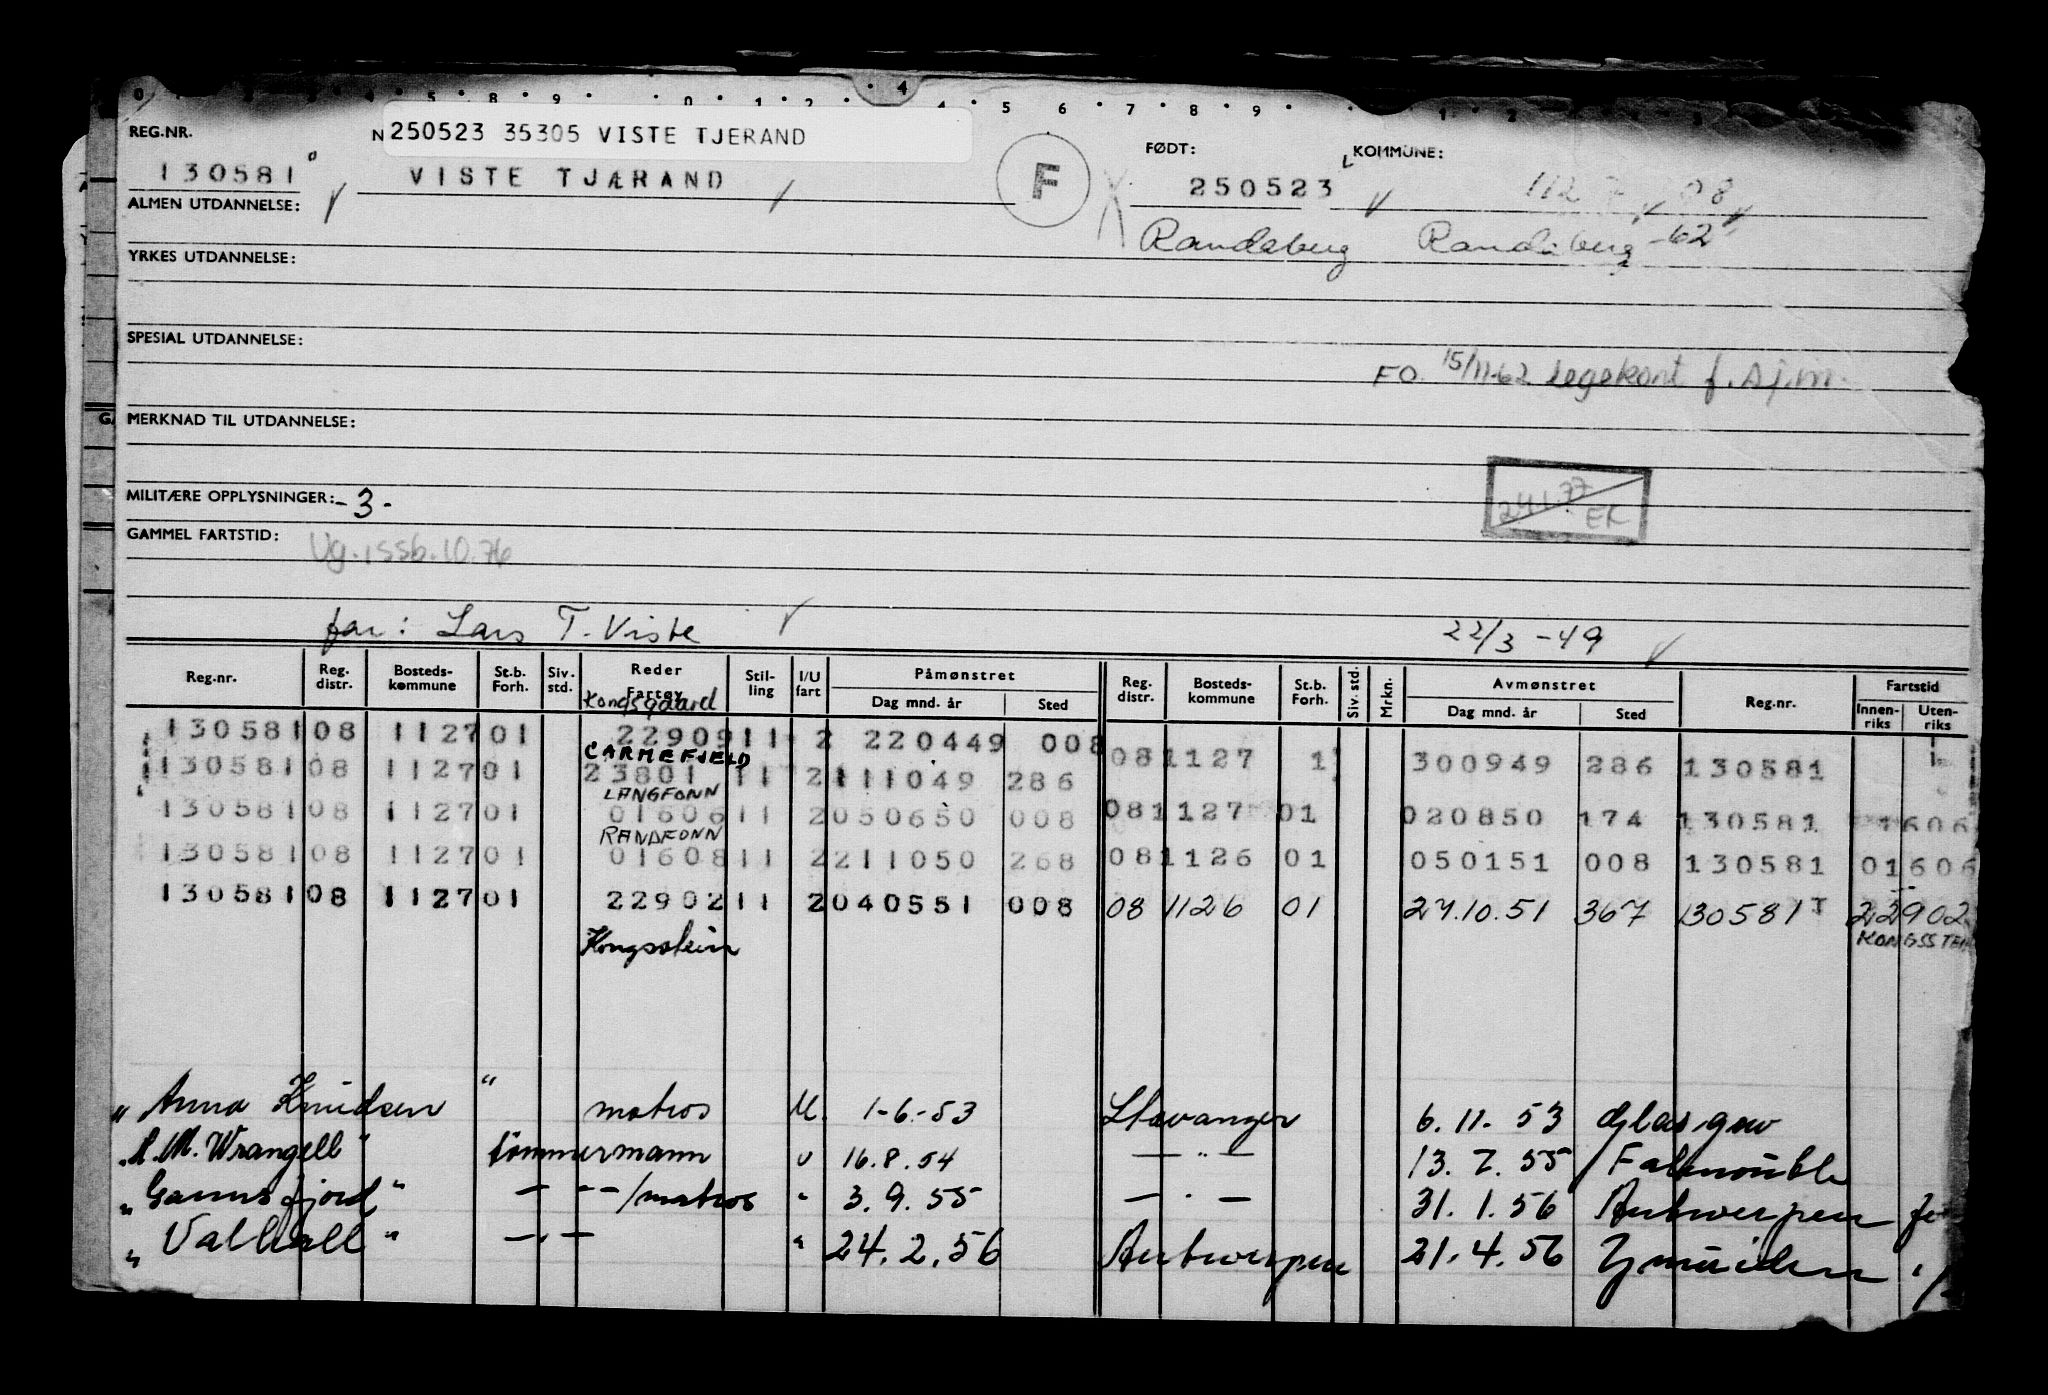 REG.NR. N 250523 35305 VISTE TJERAND FØDT: KOMMUNE:
130581 VISTE TJÆRAND F 250523 1127 08
ALMEN UTDANNELSE:
Randaberg Randaberg -62
YRKES UTDANNELSE:
SPESIAL UTDANNELSE:
FO. 15/11-62 legekont f. sjm.
MERKNAD TIL UTDANNELSE:
MILITÆRE OPPLYSNINGER: -3-
24.1.77 EK
GAMMEL FARTSTID:
far: Lars T. Viste 22/3 -49
Reg.nr. Reg. distr. Bosteds-kommune St.b. Forh. Siv. std. Reder Fartøy Stil-ling I/U fart Påmønstret Dag mnd. år Sted Reg. distr. Bosteds-kommune St.b. Forh. Siv. std. Mrkn. Avmønstret Dag mnd. år Sted Reg.nr. Fartstid Innen-riks Uten-riks
Kongsgaard
130581 08 1127 01 22909 11 2 220449 008 08 1127 1 300949 286 130581
CARMEFJELD
130581 08 1127 01 23801 11 2 111049 286
LANGFONN
130581 08 1127 01 01606 11 2 050650 008 08 1127 01 020850 174 130581 1606
RANDFONN
130581 08 1127 01 01608 11 2 211050 268 08 1126 01 050151 008 130581 01606
130581 08 1127 01 22902 11 2 040551 008 08 1126 01 27.10.51 367 130581 22902
Kongsstein KONGSSTEIN
" Anna Knudsen " matros U. 1-6-53 Stavanger 6.11.53 Glasgow
" A.M. Wrangell " tømmermann U 16.8.54 — " — 13.7.55 Falmouth
" Gausfjord " — " — /matros " 3.9.55 — " — 31.1.56 Antwerpen
" Valhall " — " — " 24.2.56 Antwerpen 21.4.56 Ymuiden "